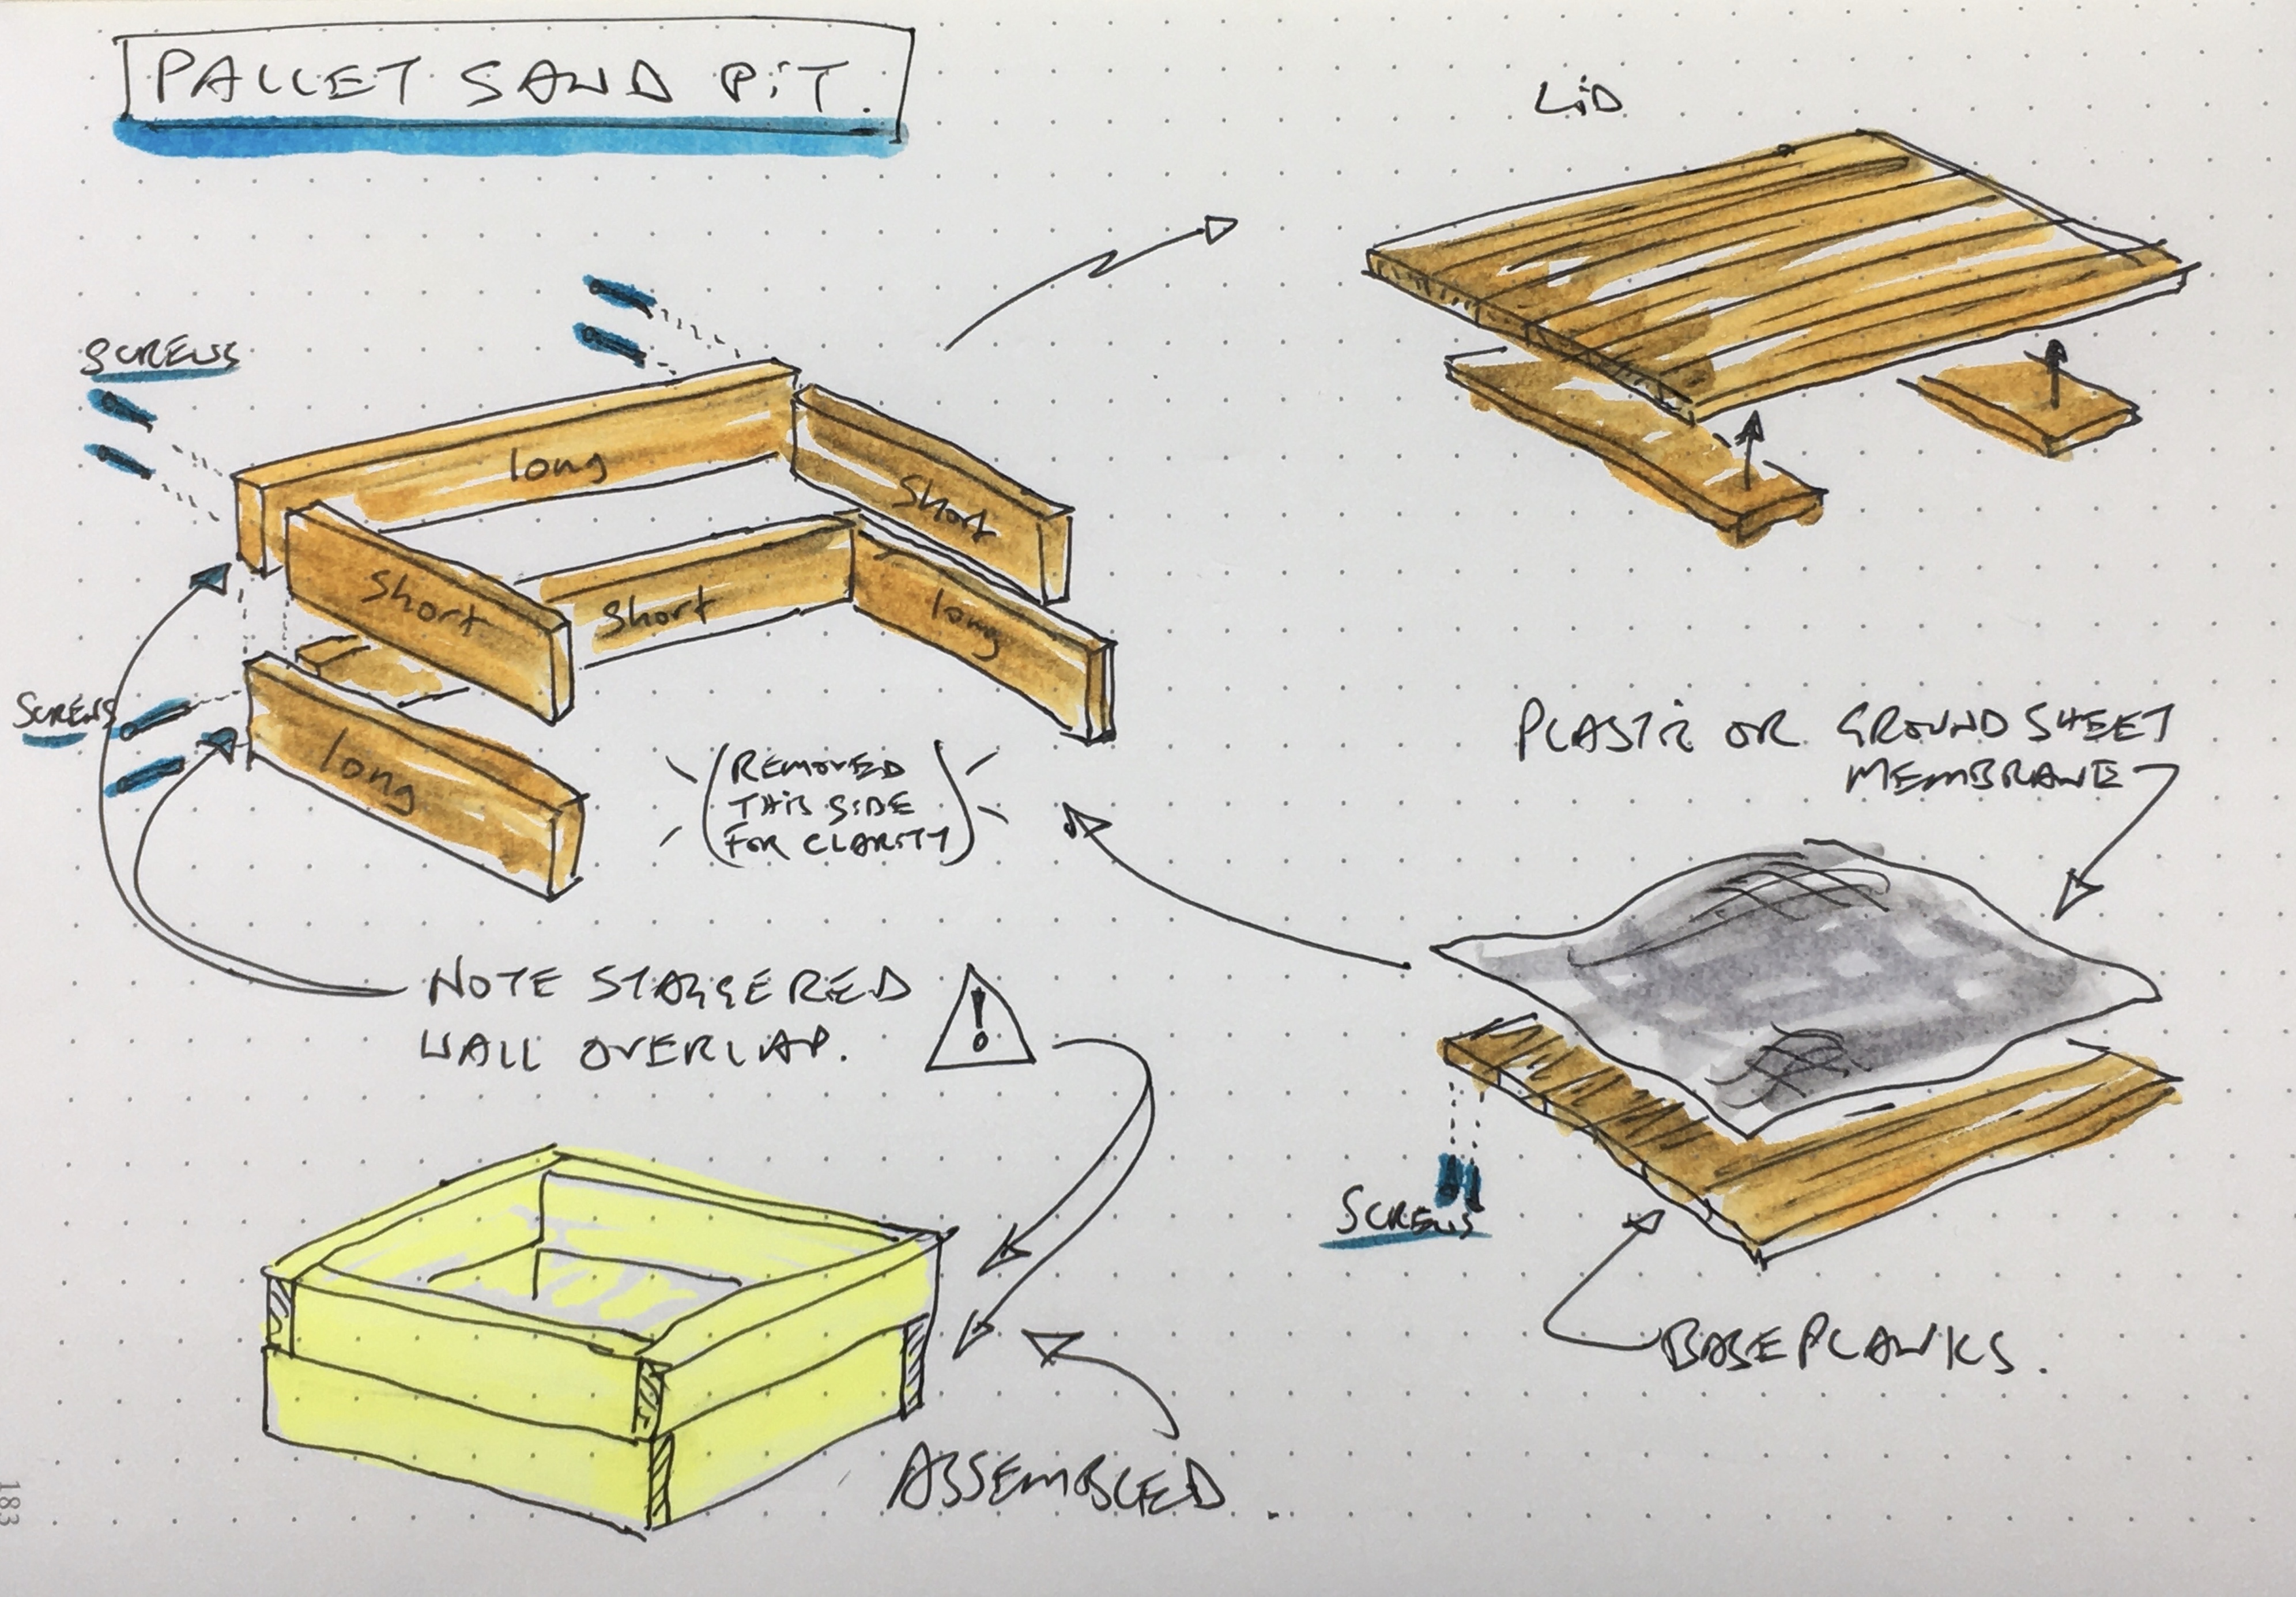 PALLET SAND PiT.
LiD
SCREWS
long
Short
Short
Short
long
SCREWS
long
(REMOVED
THIS SIDE
FOR CLARITY)
PLASTIC OR GROUND SHEET
MEMBRANE
NOTE STAGGERED
WALL OVERLAP.
!
SCREWS
BASE PLANKS.
ASSEMBLED
183